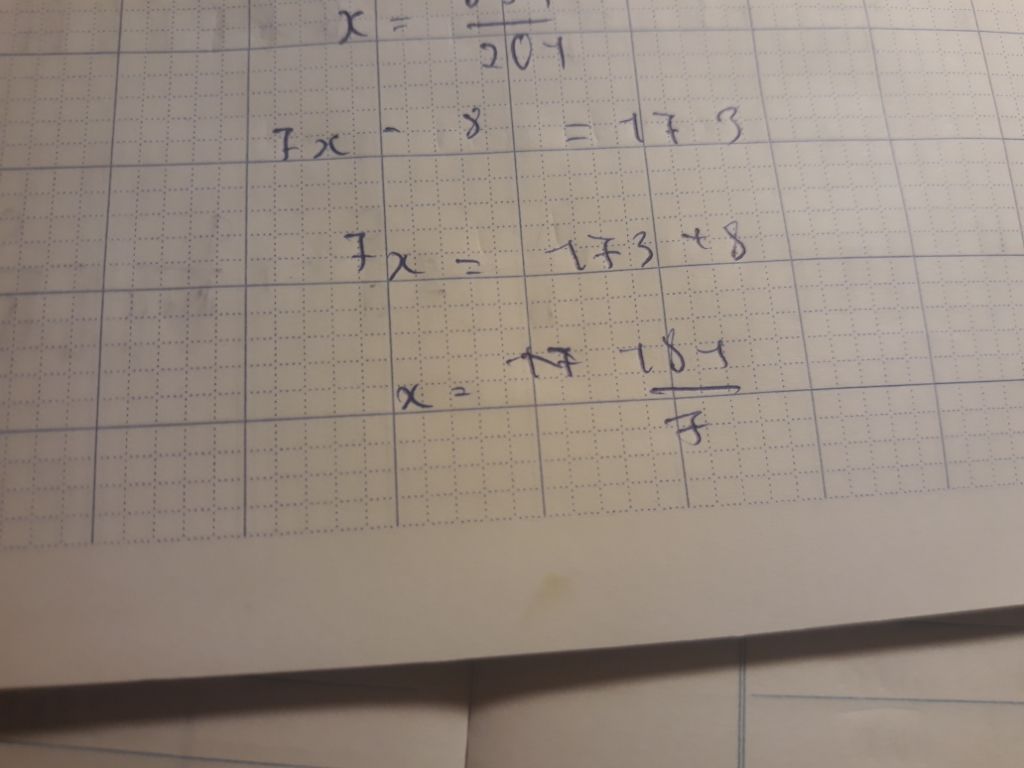 x = /201
7x - 8 = 173
7x = 173 + 8
x = 17 181/7